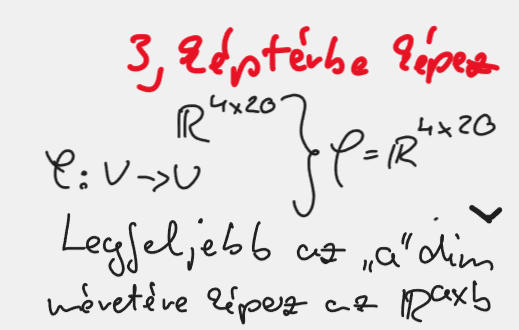 3, Képtérbe képez
ℝ⁴ˣ²⁰
φ: V → U } φ = ℝ⁴ˣ²⁰
Legfeljebb az „a" dim
méretére képez az ℝᵃˣᵇ